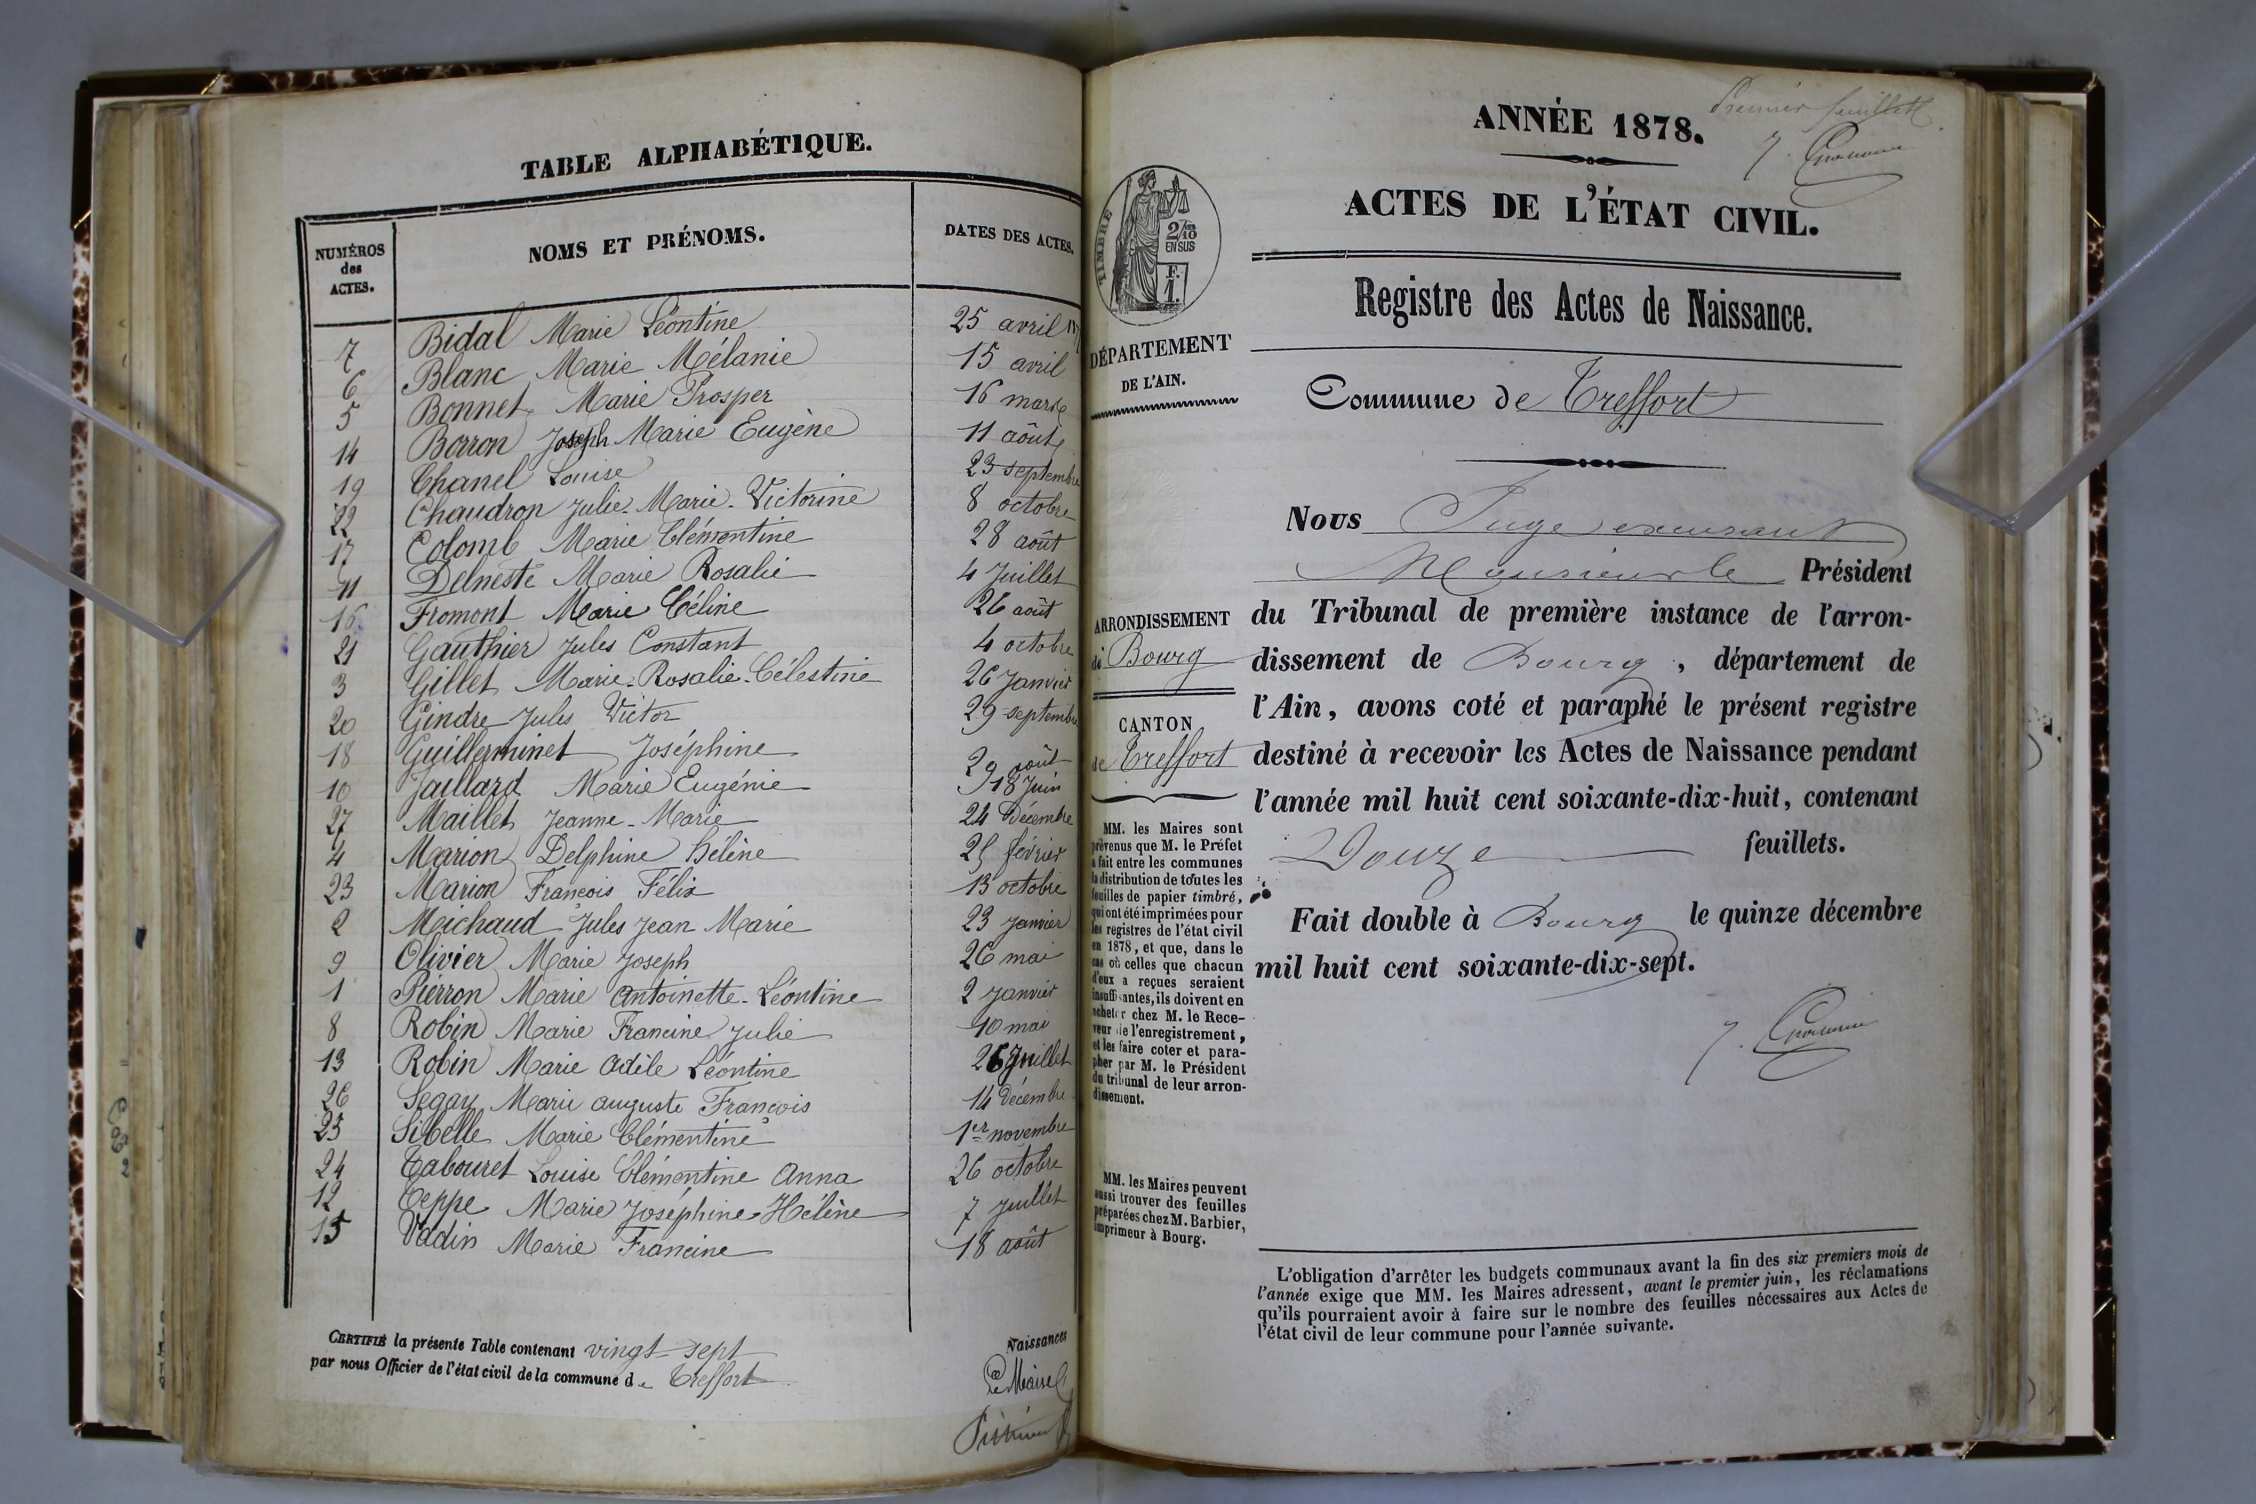 TABLE ALPHABÉTIQUE.
NUMÉROS des ACTES. NOMS ET PRÉNOMS. DATES DES ACTES.
7 Bidal Marie Léontine 25 avril
6 Blanc Marie Mélanie 15 avril
5 Bonnet Marie Prosper 16 mars
14 Borron Joseph Marie Eugène 11 août
19 Chanel Louise 23 septembre
22 Chaudron Julie Marie-Victorine 8 octobre
17 Colomb Marie Clémentine 28 août
11 Delneste Marie Rosalie 4 Juillet
16 Fromont Marie Céline 26 août
21 Gauthier Jules Constant 4 octobre
3 Gillet Marie-Rosalie-Célestine 26 Janvier
20 Gindre Jules Victor 29 septembre
18 Guillerminet Joséphine 29 août
10 Jaillard Marie Eugénie 18 Juin
27 Maillet Jeanne-Marie 24 Décembre
4 Marion Delphine Hélène 25 février
23 Marion François Félix 13 octobre
2 Michaud Jules Jean Marie 23 janvier
9 Olivier Marie Joseph 26 mai
1 Pierron Marie Antoinette-Léontine 2 janvier
8 Robin Marie Francine Julie 10 mai
13 Robin Marie Adèle Léontine 26 Juillet
26 Segay Marie Auguste François 14 décembre
25 Sibelle Marie Clémentine 1er novembre
24 Tabouret Louise Clémentine Anna 26 octobre
12 Teppe Marie Joséphine-Hélène 7 Juillet
15 Vadin Marie Francine 18 août
CERTIFIÉ la présente Table contenant vingt-sept Naissances
par nous Officier de l'état civil de la commune de Treffort
Le Maire
Premier feuillet
ANNÉE 1878.
ACTES DE L'ÉTAT CIVIL.
TIMBRE
2/10 EN SUS
F. 1.
Registre des Actes de Naissance.
DÉPARTEMENT
DE L'AIN.
Commune de Treffort
Nous Juge excusant
Monsieur le Président
du Tribunal de première instance de l'arron-
dissement de Bourg, département de
l'Ain, avons coté et paraphé le présent registre
destiné à recevoir les Actes de Naissance pendant
l'année mil huit cent soixante-dix-huit, contenant
Douze feuillets.
Fait double à Bourg le quinze décembre
mil huit cent soixante-dix-sept.
ARRONDISSEMENT
de Bourg
CANTON
de Treffort
MM. les Maires sont
prévenus que M. le Préfet
a fait entre les communes
la distribution de toutes les
feuilles de papier timbré,
qui ont été imprimées pour
les registres de l'état civil
en 1878, et que, dans le
cas où celles que chacun
d'eux a reçues seraient
insuffisantes, ils doivent en
acheter chez M. le Rece-
veur de l'enregistrement,
et les faire coter et para-
pher par M. le Président
du tribunal de leur arron-
dissement.
MM. les Maires peuvent
aussi trouver des feuilles
préparées chez M. Barbier,
imprimeur à Bourg.
L'obligation d'arrêter les budgets communaux avant la fin des six premiers mois de
l'année exige que MM. les Maires adressent, avant le premier juin, les réclamations
qu'ils pourraient avoir à faire sur le nombre des feuilles nécessaires aux Actes de
l'état civil de leur commune pour l'année suivante.